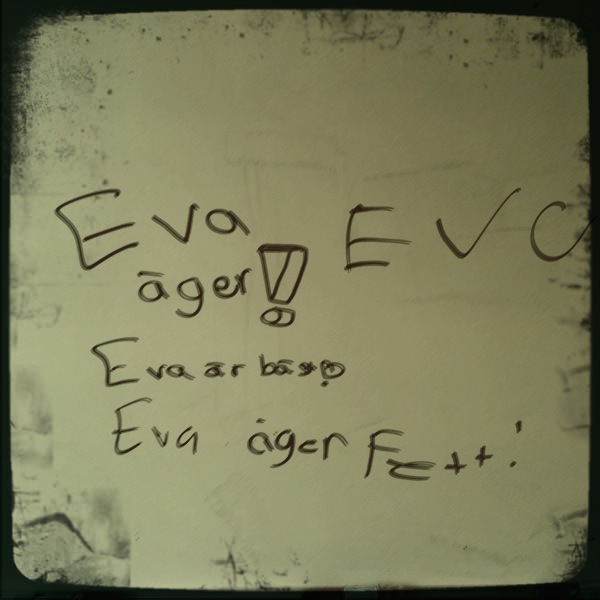 Eva EVA
äger!
Eva är bäst
Eva äger Fett!